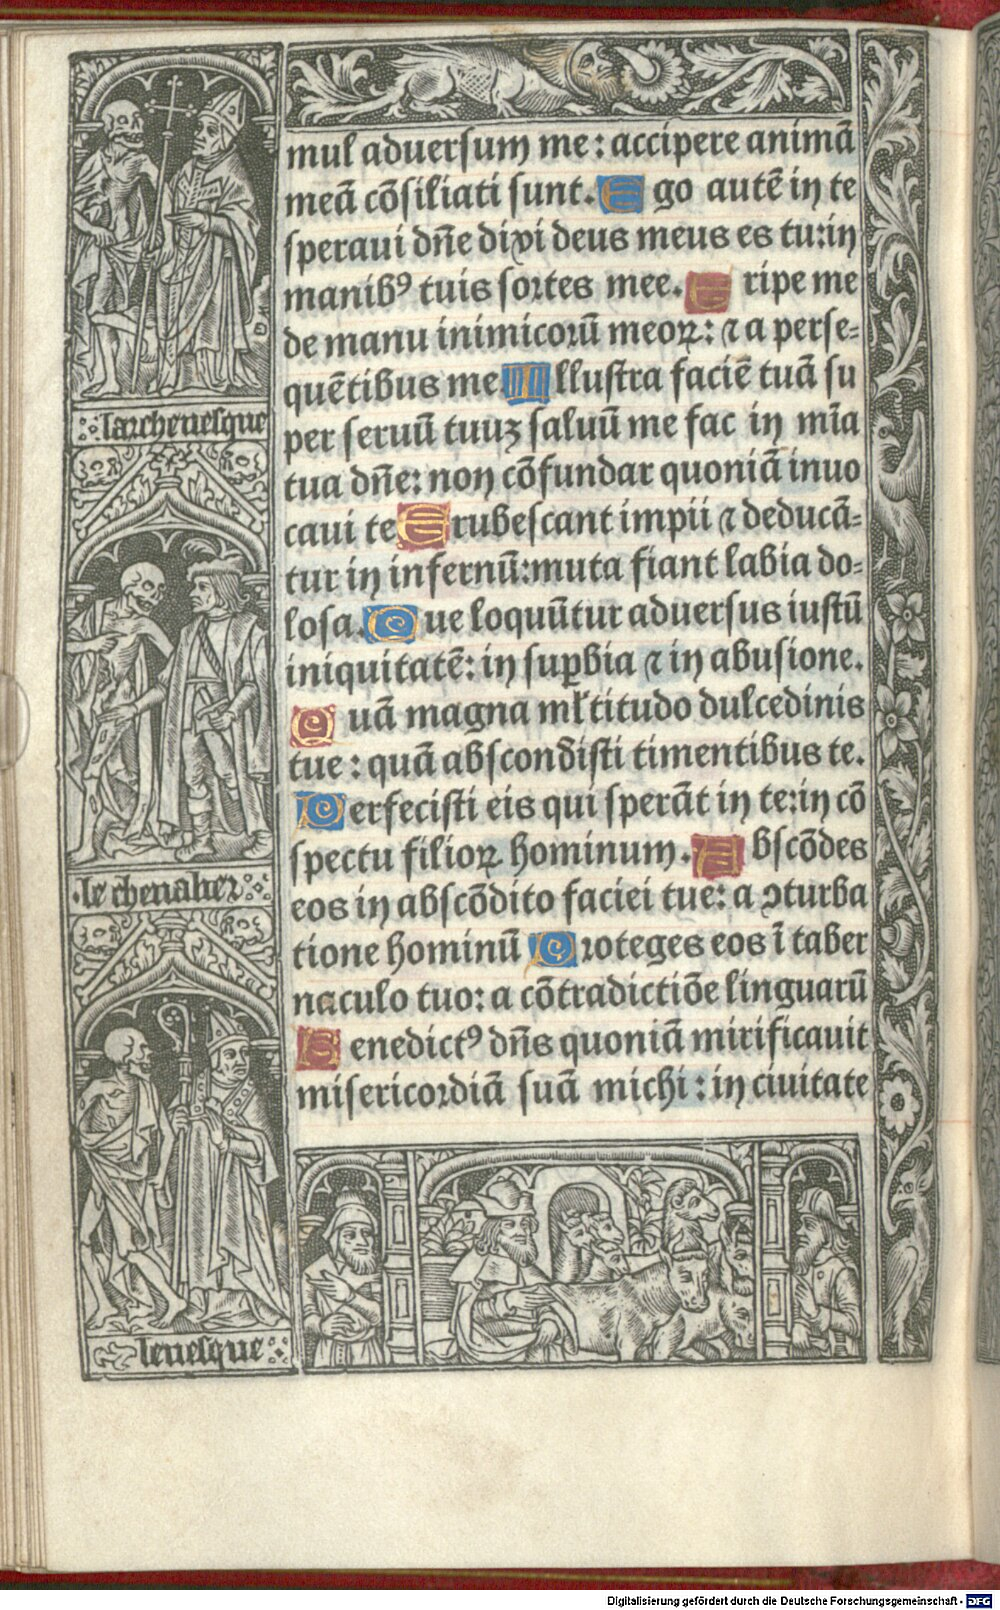 mul aduersum me : accipere animã
meã cõsiliati sunt. Ego autẽ in te
speraui dñe dixi deus meus es tu: in
manibꝰ tuis sortes mee. Eripe me
de manu inimicorũ meoꝝ: ⁊ a perse-
quẽtibus me. Illustra faciẽ tuã su
per seruũ tuuʒ saluũ me fac in mĩa
tua dñe: non cõfundar quoniã inuo
caui te Erubescant impii ⁊ deducã-
tur in infernũ: muta fiant labia do-
losa. Que loquũtur aduersus iustũ
iniquitatẽ: in suꝑbia ⁊ in abusione.
Quã magna mltitudo dulcedinis
tue : quã abscondisti timentibus te.
Perfecisti eis qui sperãt in te: in cõ
spectu filioꝝ hominum. Abscõdes
eos in abscõdito faciei tue: a ↄturba
tione hominũ Proteges eos ĩ taber
naculo tuo: a cõtradictiõe linguarũ
Benedictꝰ dñs quoniã mirificauit
misericordiã suã michi : in ciuitate
larcheuesque
le cheualier
leuesque
Digitalisierung gefördert durch die Deutsche Forschungsgemeinschaft - DFG